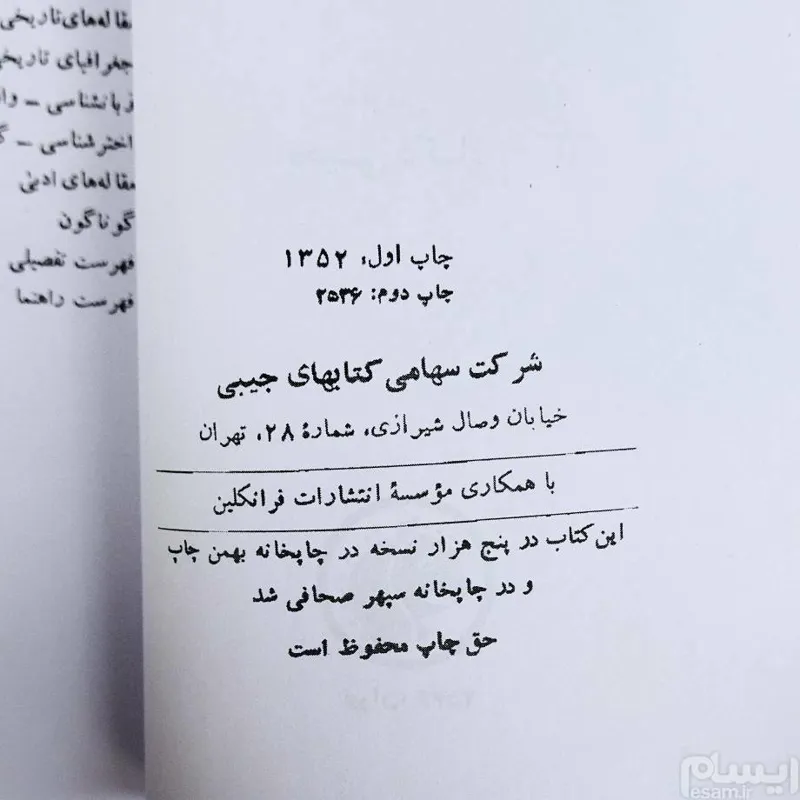 چاپ اول، ۱۳۵۲
چاپ دوم: ۲۵۳۶
شرکت سهامی کتابهای جیبی
خیابان وصال شیرازی، شمارهٔ ۲۸، تهران
با همکاری مؤسسهٔ انتشارات فرانکلین
این کتاب در پنج هزار نسخه در چاپخانه بهمن چاپ
و در چاپخانه سپهر صحافی شد
حق چاپ محفوظ است
مقاله‌های تاریخی
جغرافیای تاریخی
زبانشناسی –
اخترشناسی –
مقاله‌های ادبی
گوناگون
فهرست تفصیلی
فهرست راهنما
ایسام
esam.ir